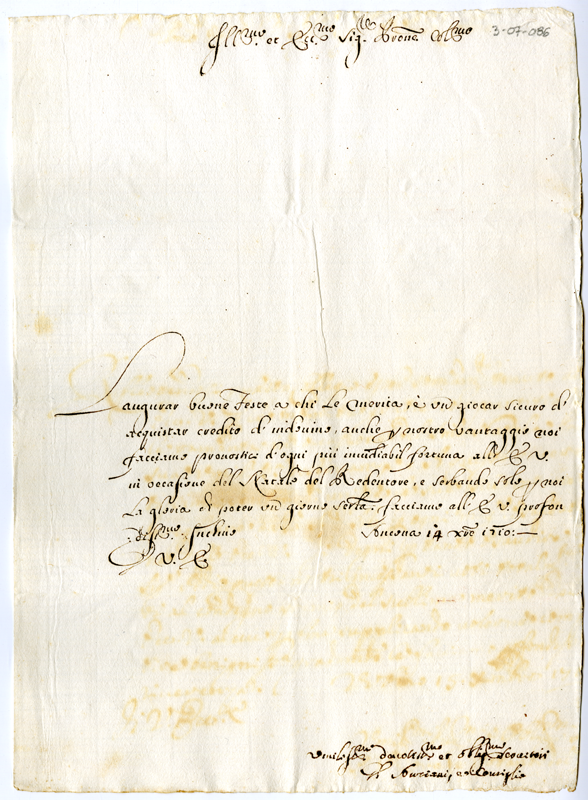 Ill.mo et Ecc.mo Sig.r Prone Col.mo
3-07-086
L'augurar buone Feste a chi le merita, è un giocar sicuro d'
acquistar credito d'indovino, anche p nostro vantaggio noi
facciamo pronostici d'ogni più invidiabil fortuna all'E. V.
in occasione del Natale del Redentore, e serbando solo p noi
la gloria di poter un giorno facciamo all'E. V. profon
diss.mo Inchino Ancona 14 Xbre 1710:
D V. E.
Umiliss.mi devotiss.mi et obblig.mi Servitori
Gl'Anziani, e Consiglio